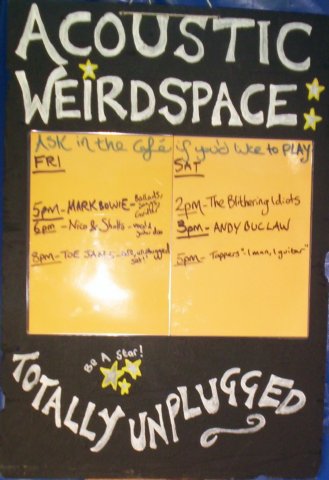 ACOUSTIC
WEIRDSPACE
ASK in the Café if you'd like to PLAY
FRI
5pm - MARK BOWIE - Ballads
6pm - Nico &
8pm - TOE unplugged
SAT
2pm - The Blithering Idiots
3pm - ANDY BUCLAW
5pm - Tappers "1 man, 1 guitar"
Be A Star!
TOTALLY UNPLUGGED